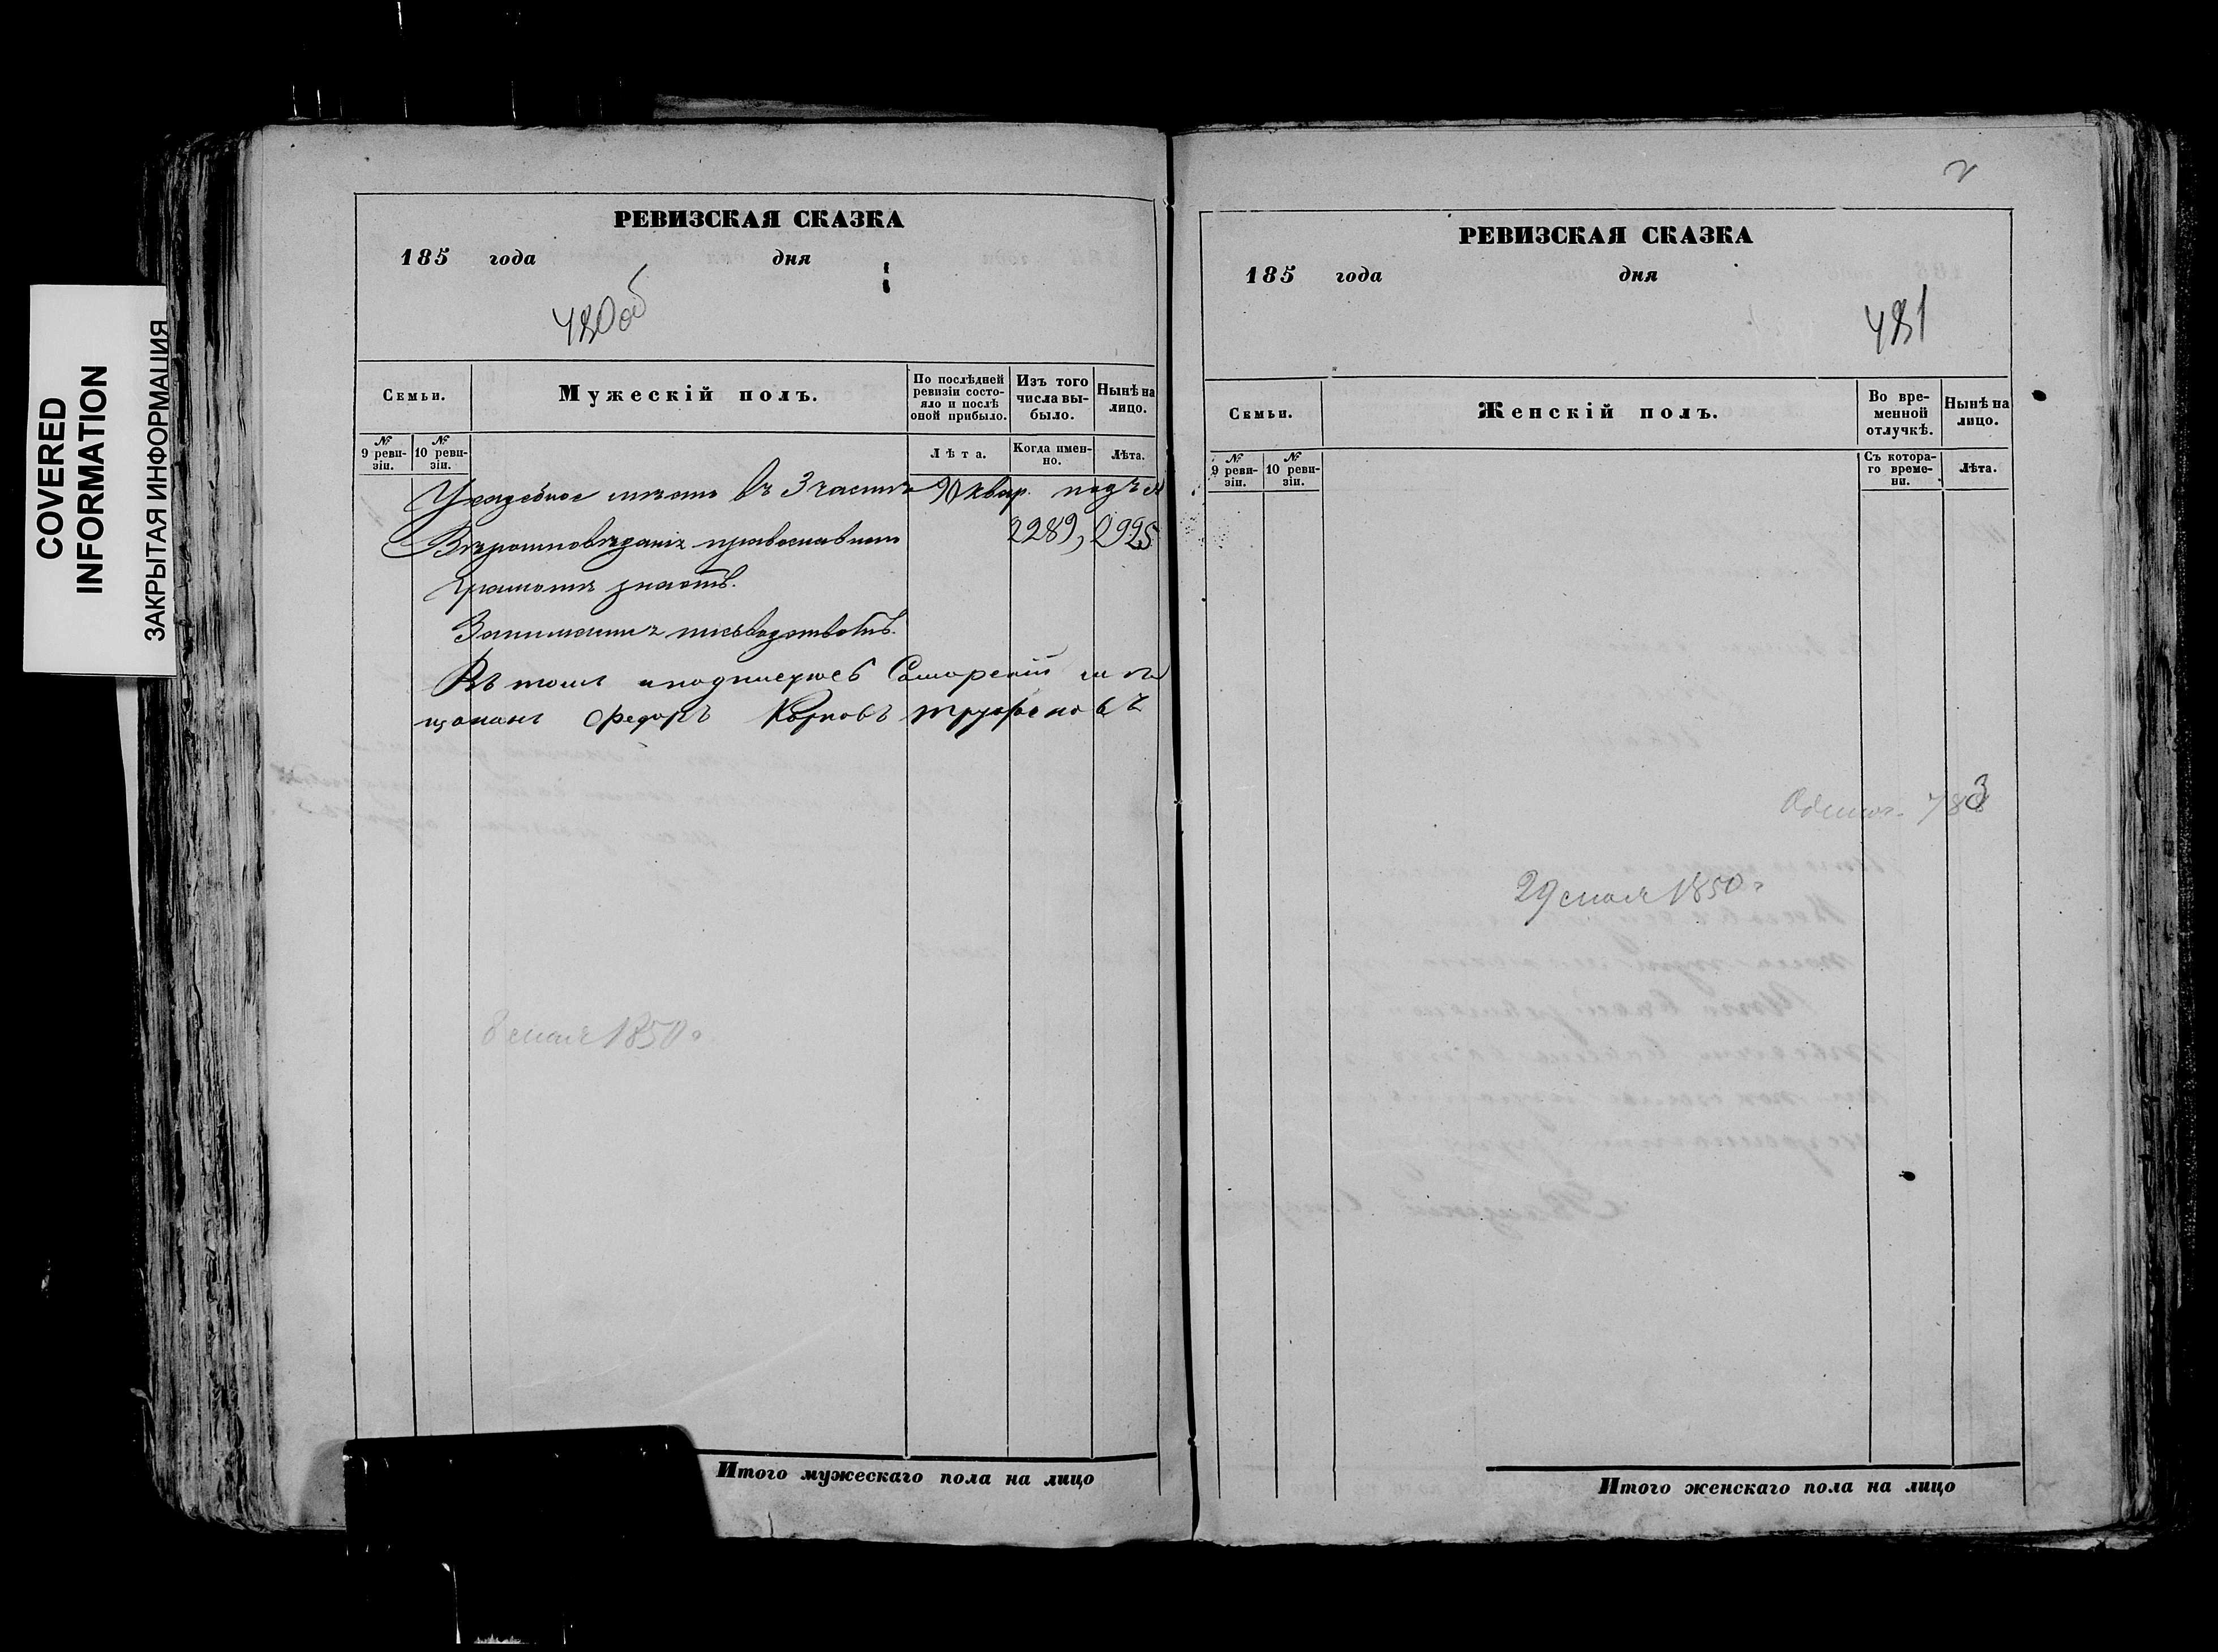 COVERED
INFORMATION
ЗАКРЫТАЯ ИНФОРМАЦИЯ
РЕВИЗСКАЯ СКАЗКА
185 года дня
480об
Семьи.
Мужескій полъ.
По послѣдней ревизіи состояло и послѣ оной прибыло.
Изъ того числа выбыло.
Нынѣ на лицо.
№ 9 ревизіи.
№ 10 ревизіи.
Лѣта.
Когда именно.
Лѣта.
Усадебное мѣсто въ 3 части 90 квар. подъ №
Вѣроисповѣданія православнаго 2289, 2925
Грамотѣ знаетъ.
Занимается письмоводствомъ.
Въ томъ и подписуюсь Самарскій мѣ
щанинъ Федоръ Карповъ Труфановъ
8 мая 1850 г
Итого мужескаго пола на лицо
2
РЕВИЗСКАЯ СКАЗКА
185 года дня
481
Семьи.
Женскій полъ.
Во временной отлучкѣ.
Нынѣ на лицо.
№ 9 ревизіи.
№ 10 ревизіи.
Съ котораго времени.
Лѣта.
29 мая 1850 г
Итого женскаго пола на лицо